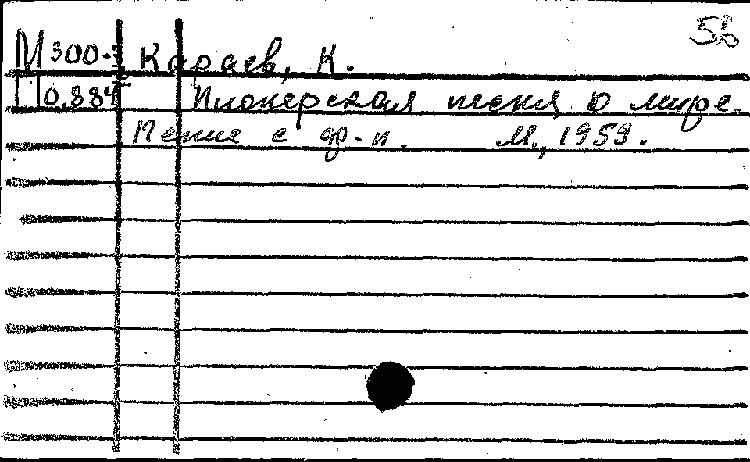 58
М 300-3 Караев, К.
П 0.884 Пионерская песня о мире.
Пение с ф-п. М., 1959.